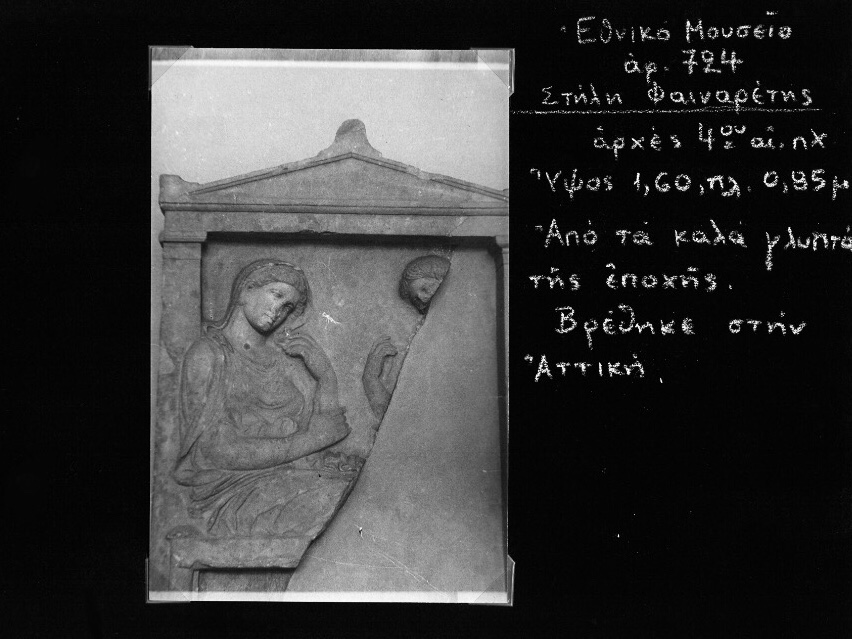 Ἐθνικό Μουσεῖο
ἀρ. 724
Στήλη Φαιναρέτης
ἀρχές 4ου αἰ. πΧ
Ὕψος 1,60, πλ. 0,85μ
Ἀπό τά καλά γλυπτά
τῆς ἐποχῆς.
Βρέθηκε στήν
Ἀττική.